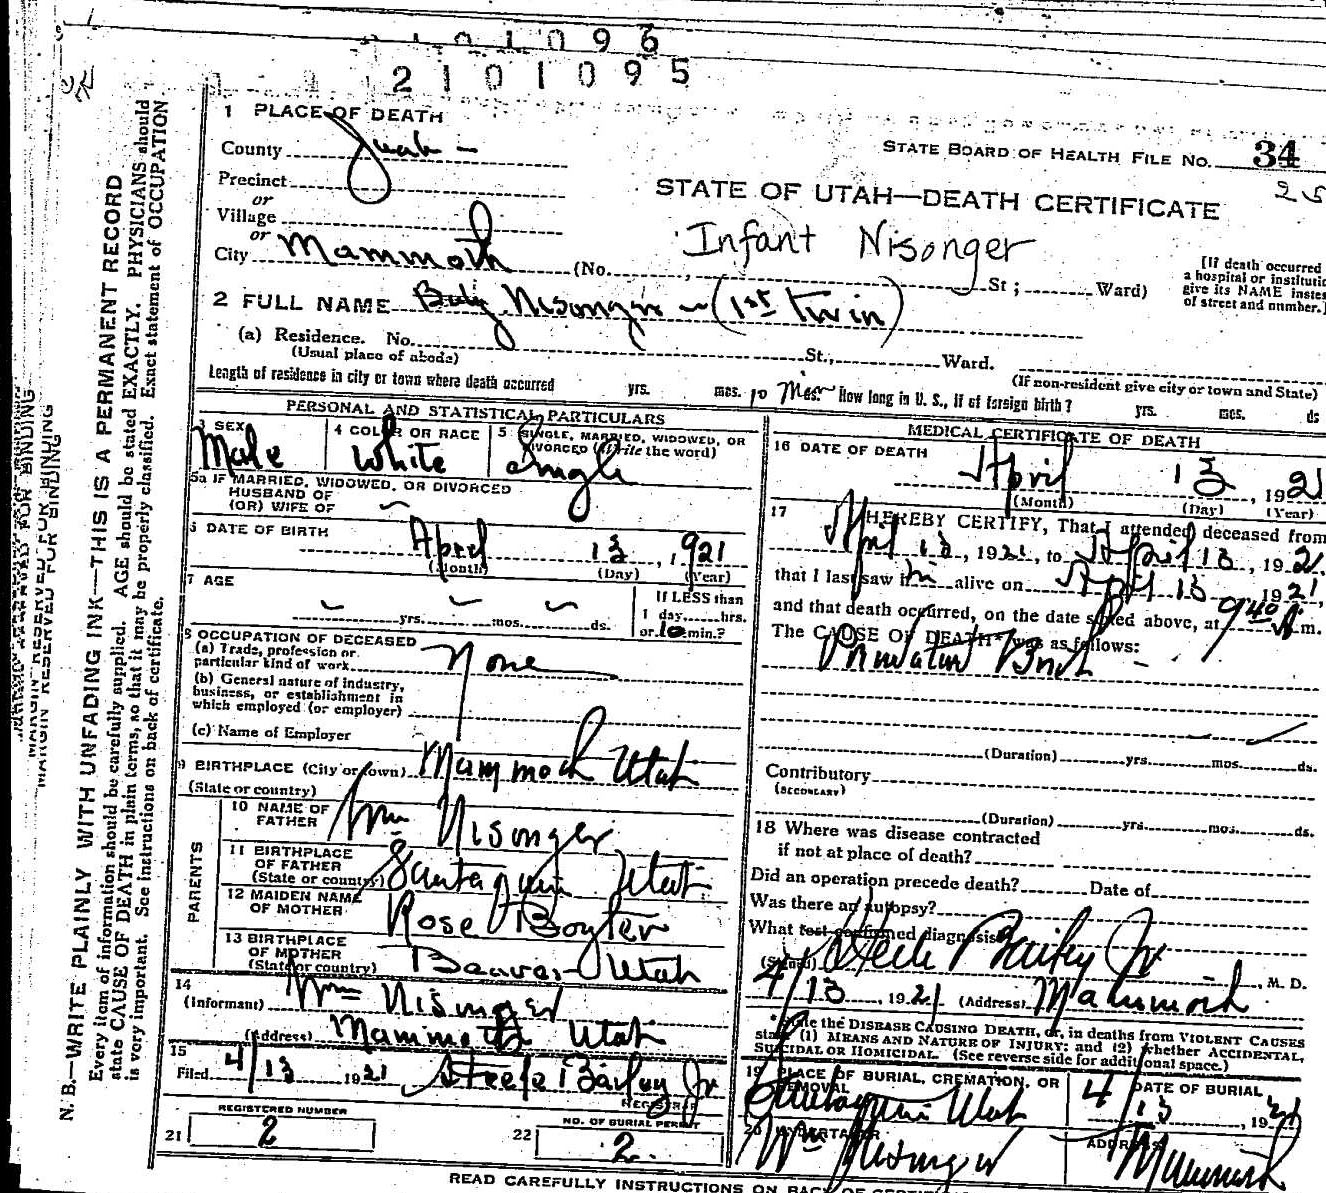 1 0 1 0 9 6
2 1 0 1 0 9 5
1 PLACE OF DEATH
County Juab
STATE BOARD OF HEALTH FILE No. 34
25
Precinct
or
Village
or
City Mammoth (No. St; Ward)
STATE OF UTAH—DEATH CERTIFICATE
Infant Nisonger
[If death occurred
a hospital or institutio
give its NAME instea
of street and number.]
2 FULL NAME Baby Nisonger (1st Twin)
(a) Residence. No. St., Ward.
(Usual place of abode) (If non-resident give city or town and State)
Length of residence in city or town where death occurred yrs. mos. 10 Min. How long in U. S., if of foreign birth? yrs. mos. ds
PERSONAL AND STATISTICAL PARTICULARS
3 SEX
Male
4 COLOR OR RACE
White
5 SINGLE, MARRIED, WIDOWED, OR
DIVORCED (Write the word)
Single
5a IF MARRIED, WIDOWED, OR DIVORCED
HUSBAND OF
(OR) WIFE OF
6 DATE OF BIRTH
April 13, 1921
(Month) (Day) (Year)
7 AGE
yrs. mos. ds.
If LESS than
1 day hrs.
or 10 min.?
8 OCCUPATION OF DECEASED
(a) Trade, profession or
particular kind of work None
(b) General nature of industry,
business, or establishment in
which employed (or employer)
(c) Name of Employer
9 BIRTHPLACE (City or town) Mammoth Utah
(State or country)
PARENTS
10 NAME OF
FATHER Wm Nisonger
11 BIRTHPLACE
OF FATHER
(State or country) Santaquin Utah
12 MAIDEN NAME
OF MOTHER Rose Boyter
13 BIRTHPLACE
OF MOTHER
(State or country) Beaver Utah
14
(Informant) Wm Nisonger
(Address) Mammoth Utah
15
Filed 4/13 1921 Steele Bailey Jr
REGISTRAR
REGISTERED NUMBER
21 2
NO. OF BURIAL PERMIT
22 2
MEDICAL CERTIFICATE OF DEATH
16 DATE OF DEATH
April 13, 1921
(Month) (Day) (Year)
17 I HEREBY CERTIFY, That I attended deceased from
April 13, 1921, to April 13, 1921,
that I last saw him alive on April 13, 1921,
and that death occurred, on the date stated above, at 9 40 A m.
The CAUSE OF DEATH* was as follows:
Birth
(Duration) yrs. mos. ds.
Contributory
(SECONDARY)
(Duration) yrs. mos. ds.
18 Where was disease contracted
if not at place of death?
Did an operation precede death? Date of
Was there an autopsy?
What test confirmed diagnosis
(Signed) Steele Bailey Jr, M. D.
4/13, 1921 (Address) Mammoth
State the DISEASE CAUSING DEATH, or, in deaths from VIOLENT CAUSES
state (1) MEANS AND NATURE OF INJURY; and (2) whether ACCIDENTAL,
SUICIDAL OR HOMICIDAL. (See reverse side for additional space.)
19 PLACE OF BURIAL, CREMATION, OR
REMOVAL
Santaquin Utah
DATE OF BURIAL
4/13, 1921
20 UNDERTAKER
Wm Nisonger
ADDRESS
Mammoth
READ CAREFULLY INSTRUCTIONS ON BACK OF
MARGIN RESERVED FOR BINDING
N. B.—WRITE PLAINLY WITH UNFADING INK—THIS IS A PERMANENT RECORD
Every item of information should be carefully supplied. AGE should be stated EXACTLY. PHYSICIANS should
state CAUSE OF DEATH in plain terms, so that it may be properly classified. Exact statement of OCCUPATION
is very important. See instructions on back of certificate.